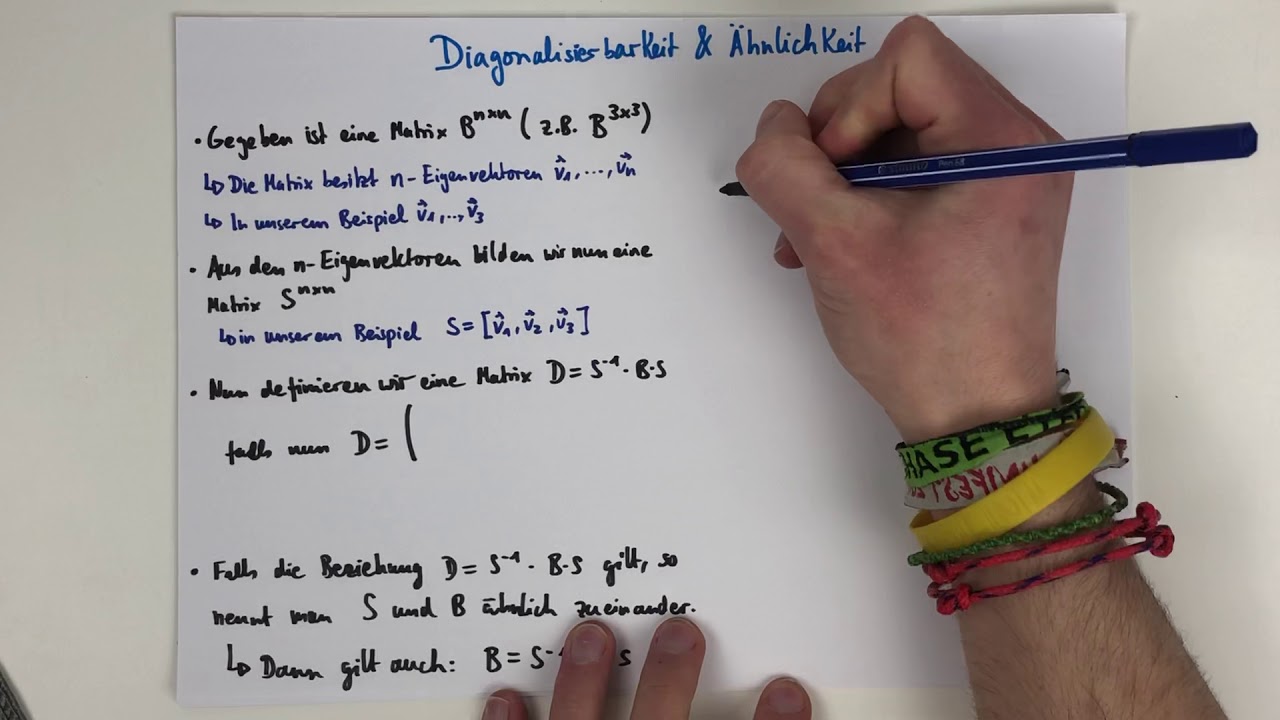 Diagonalisierbarkeit & Ähnlichkeit
• Gegeben ist eine Matrix Bⁿˣⁿ (z.B. B³ˣ³)
↳ Die Matrix besitzt n-Eigenvektoren v⃗₁,...,v⃗ₙ
↳ In unserem Beispiel v⃗₁,..,v⃗₃
• Aus den n-Eigenvektoren bilden wir nun eine
Matrix Sⁿˣⁿ
↳ in unserem Beispiel S=[v⃗₁,v⃗₂,v⃗₃]
• Nun definieren wir eine Matrix D=S⁻¹·B·S
falls nun D= (
• Falls die Beziehung D=S⁻¹·B·S gilt, so
nennt man S und B ähnlich zueinander.
↳ Dann gilt auch: B=S⁻ S
HASE